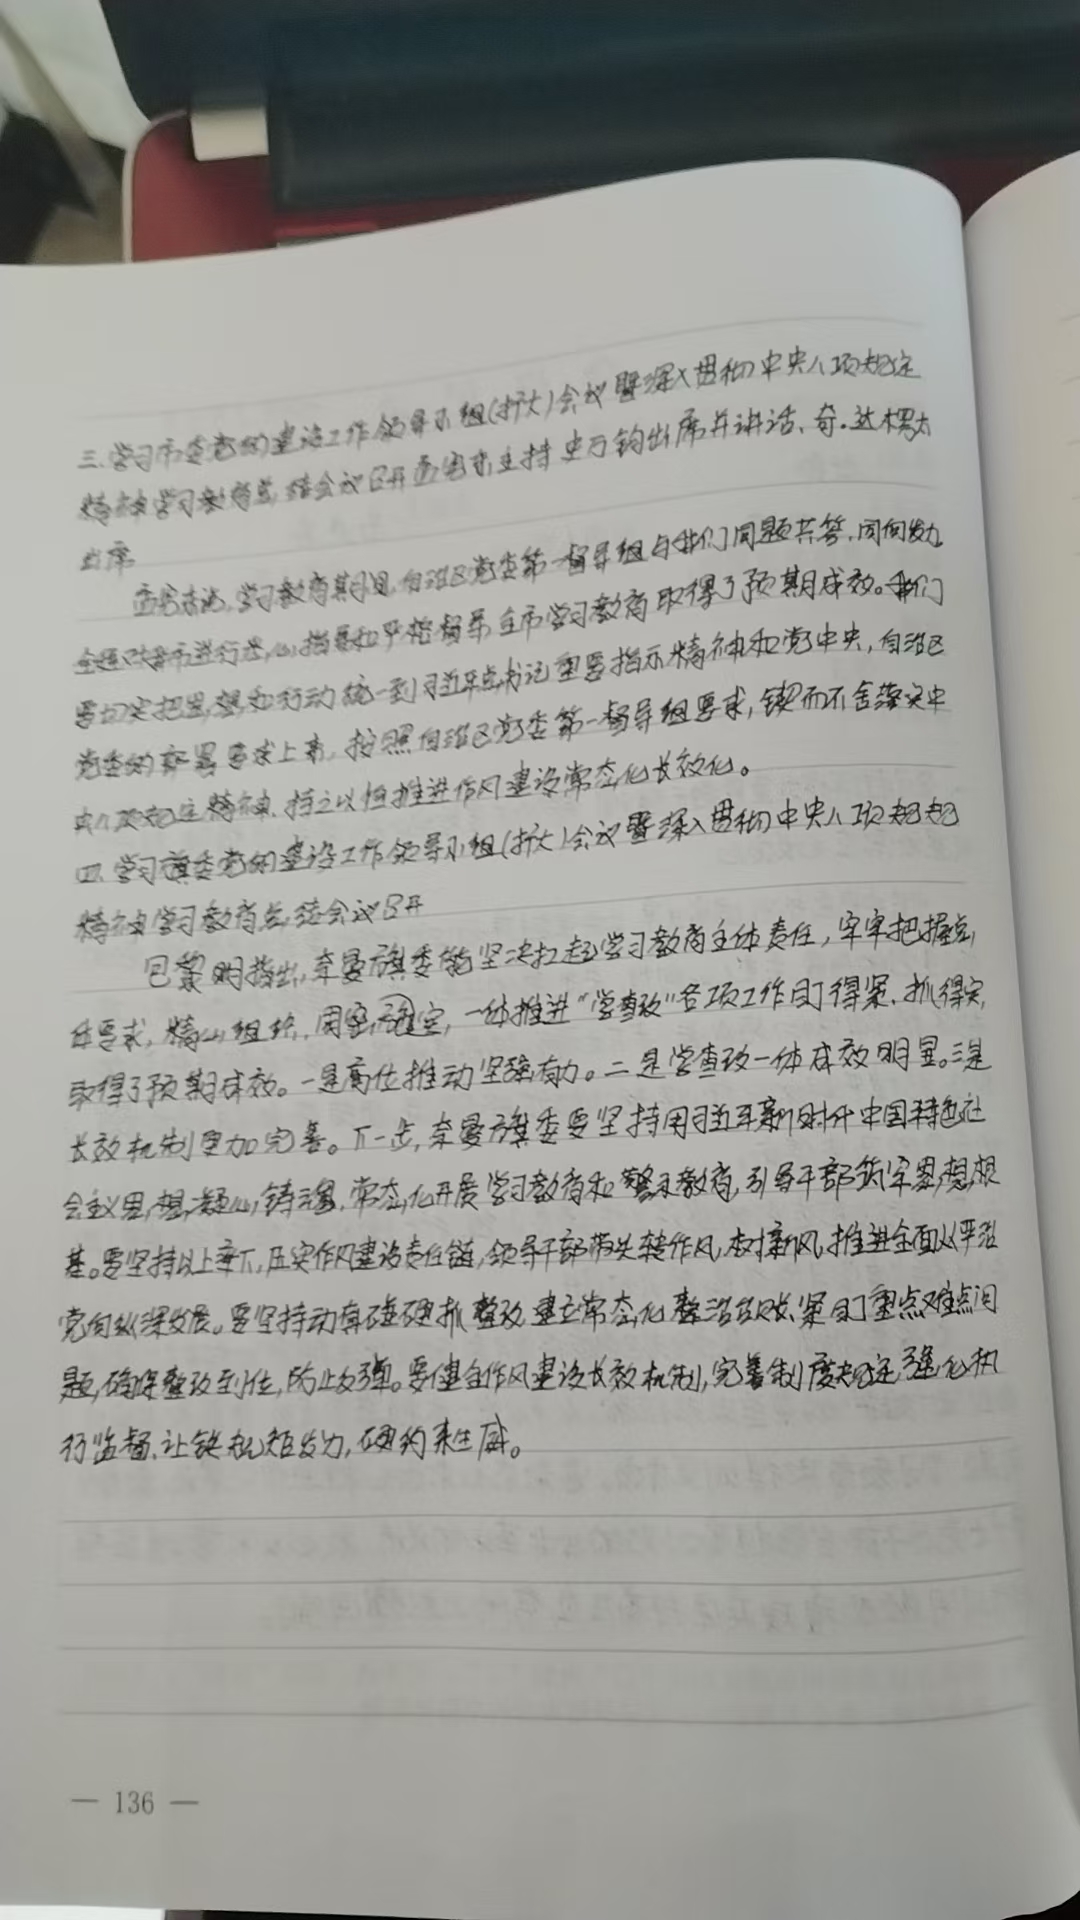 三.学习市委党的建设工作领导小组(扩大)会议暨深入贯彻中央八项规定
精神学习教育总结会议召开 孟宪东主持 史万钧出席并讲话、奇·达楞太
出席
孟宪东说,学习教育期间,自治区党委第一督导组与我们同题共答、同向发力
全程对我市进行悉心指导和严格督导 全市学习教育取得了预期成效。我们
要切实把思想和行动统一到习近平总书记重要指示精神和党中央,自治区
党委的部署要求上来,按照自治区党委第一督导组要求,锲而不舍落实中
央八项规定精神、持之以恒推进作风建设常态化长效化。
四.学习旗委党的建设工作领导小组(扩大)会议暨深入贯彻中央八项规规
精神学习教育总结会议召开
包黎明指出,奈曼旗委能坚决扛起学习教育主体责任,牢牢把握总
体要求,精心组织、周密 定,一体推进“学查改”各项工作盯得紧、抓得实,
取得了预期成效。一是高位推动坚强有力。二是学查改一体成效明显。三是
长效机制更加完善。下一步,奈曼旗委要坚持用习近平新时代中国特色社
会主义思想凝心铸魂,常态化开展学习教育和警示教育,引导干部筑牢思想根
基。要坚持以上率下,压实作风建设责任链,领导干部带头转作风,树新风,推进全面从严治
党向纵深发展。要坚持动真碰硬抓整改 建立常态化整治 紧盯重点难点问
题,确保整改到位,防止反弹。要健全作风建设长效机制,完善制度规定 强化执
行监督、让铁规矩发力,硬约束生威。
— 136 —